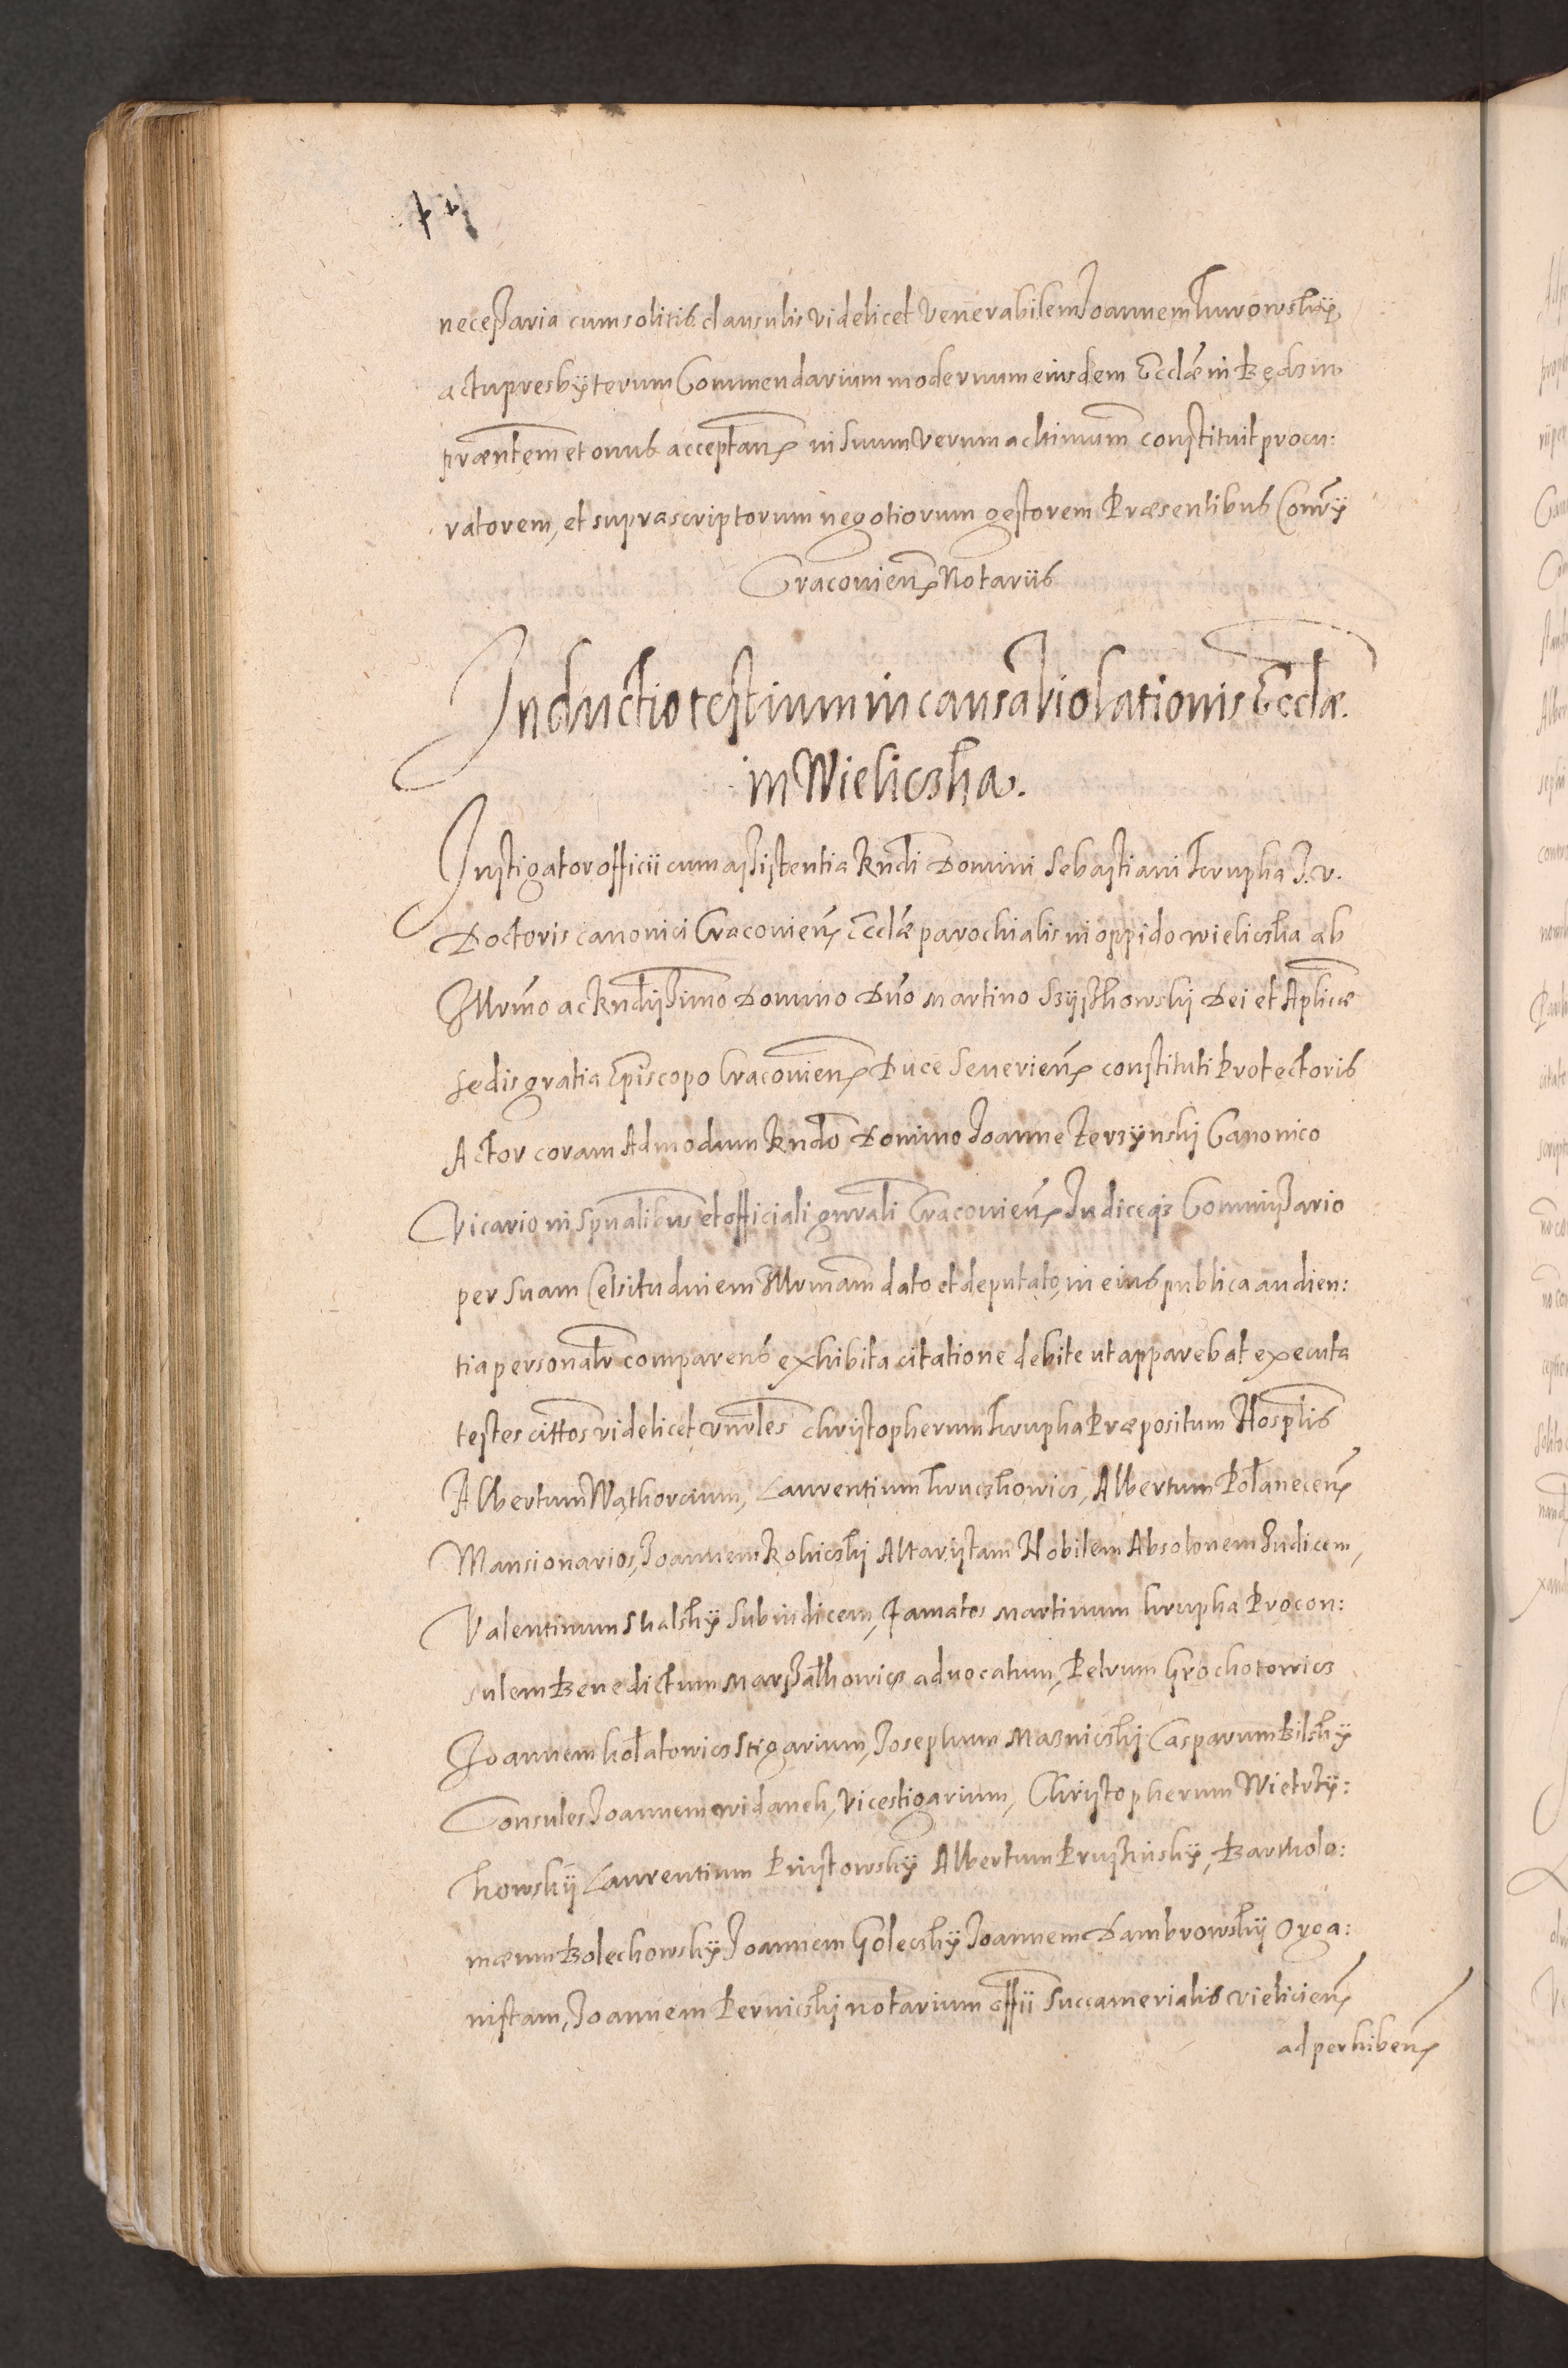 necessaria cum solitis clausulis videlicet Venerabilem Joannem Turowsky
actu presbyterum Commendarium modernum eiusdem Ecclae in Będzin
praentem et onus acceptan in suum verum ac ltimum constituit procu:
ratorem, et suprascriptorum negotiorum gestorem Praesentibus Consry
Cracovien Notariis
Inductio testium in causa Violationis Ecclae.
in Wieliczka.
Instigator officii cum assistentia Rndi Domini Sebastiani Krupka J. V.
Doctoris canonici Cracovien Ecclae parochialis in oppido Wieliczka ab
Illrmo ac Rndissimo Domino Dno Martino Szyszkowskÿ Dei et Aplicae
sedis gratia Episcopo Cracovien Duce Severien constituti Protectoris
Actor coram Admodum Rndo Domino Joanne Zerzynski Canonico
Vicario in Spualibus et officiali gnrali Cracovien Judiceq3 Commissario
per Suam Celsitudinem Illrmam dato et deputato, in eius publica audien:
tia personalr comparens exhibita citatione debite ut apparebat executa
testes cittos videlicet vnrles Christopherum Krupka Praepositum Hosplis
Albertum Wąthorcium, Laurentium Kruczkowicz, Albertum Połanecen
Mansionarios, Joannem Rokicski Altaristam Nobilem Absolonem Judicem,
Valentinum Skalsky Subiudicem, Famatos Martinum Krupka Procon:
sulem Benedictum Marszałkowicz advocatum, Petrum Grochotowicz
Joannem Kołatowicz Stigarium, Josephum Maznicski Casparum Bilsky
Consules Joannem Widanek, Vicestigarium, Christopherum Wietrzy:
kowsky Laurentium Piiistowsky Albertum Pruszinsky, Bartholo:
maeum Bolechowsky Joannem Golecsky Joannem Dambrowsky Orga:
nistam, Joannem Pernicski notarium offii Succamerialis Vielicien
ad perhiben